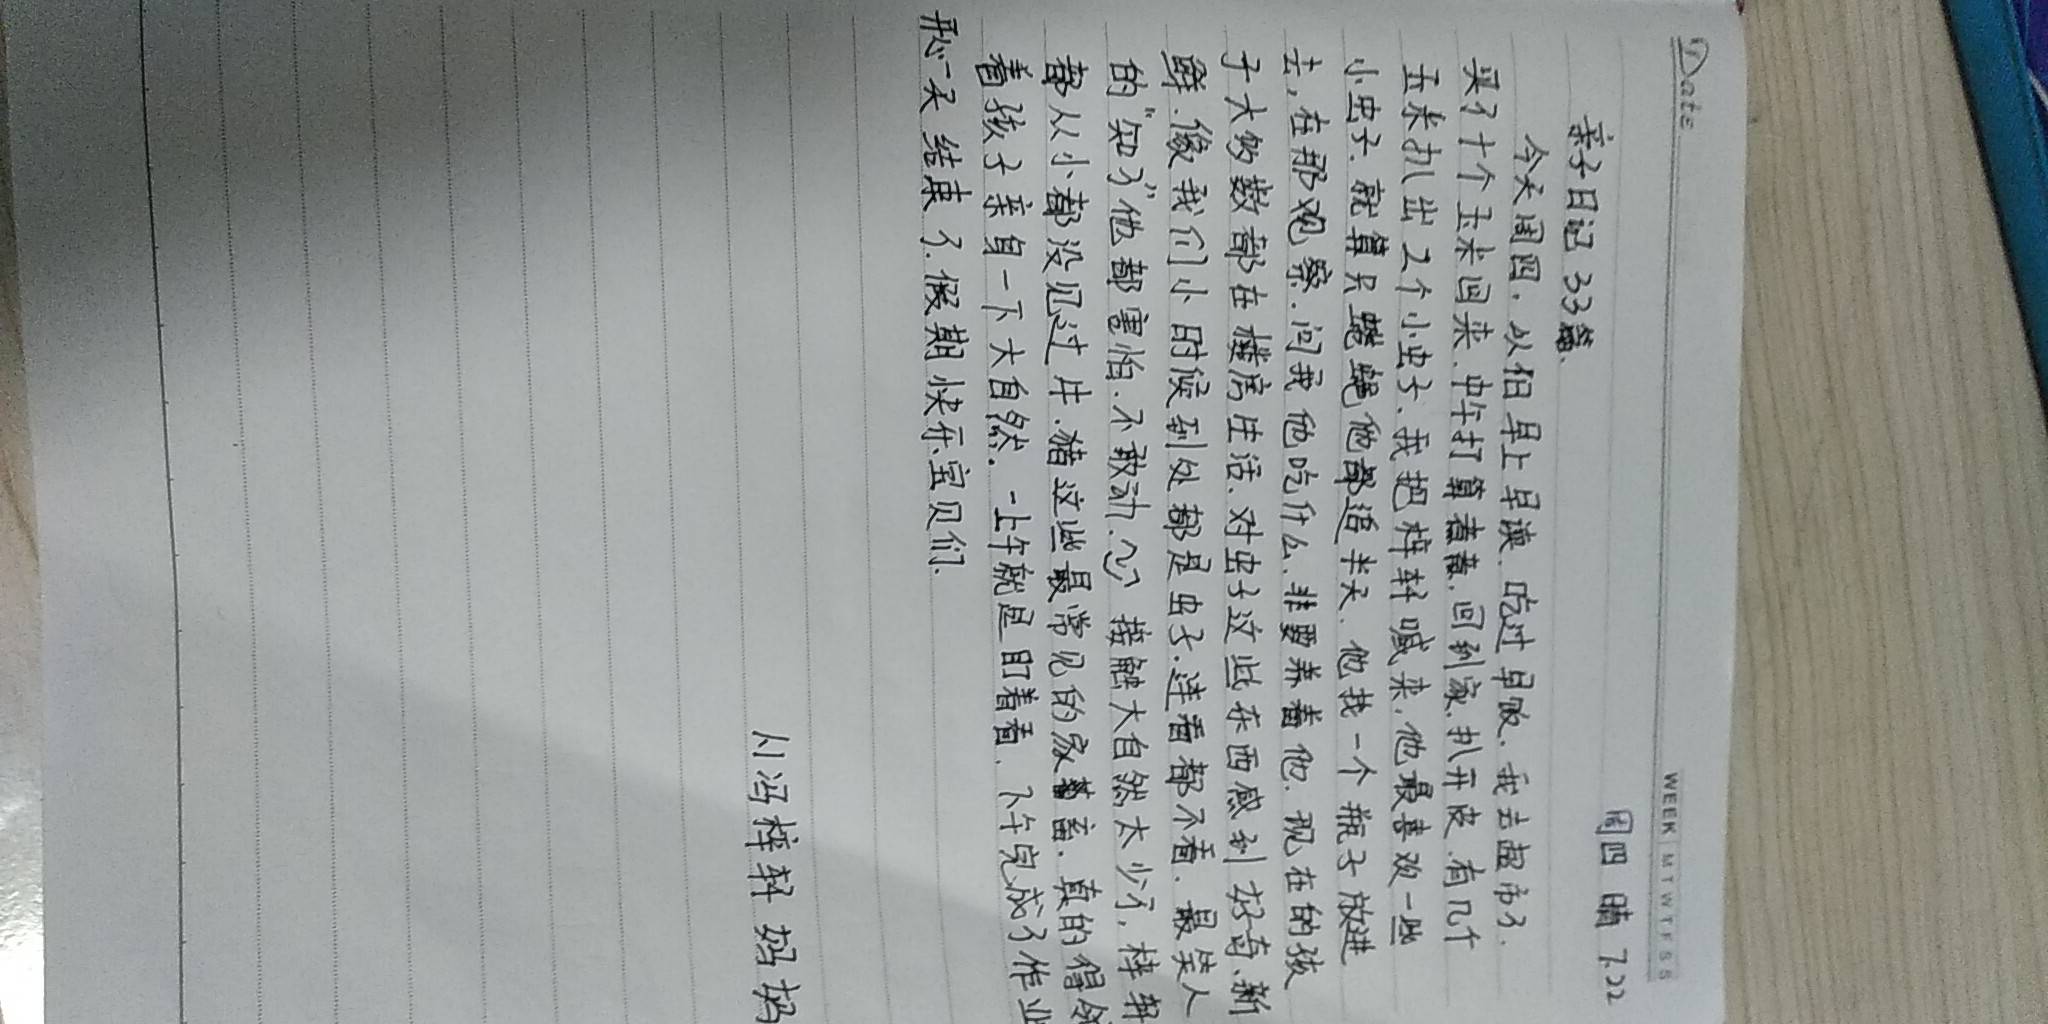 Date
WEEK M T W T F S S
周四 晴 7.22
亲子日记 33篇.
今天周四.从旧早上早读.吃过早饭.我去超市了.
买了十个玉米回来.中午打算煮着.回到家.扒开皮.有几个
玉米扒出2个小虫子.我把梓轩喊来.他最喜欢一些
小虫子.就算只蟋蟀他都逗半天.他找一个瓶子放进
去,在那观察.问我他吃什么.非要养着他.现在的孩
子大多数都在楼房生活.对虫子这些东西感到好奇、新
鲜.像我们小时候到处都是虫子.连看都不看.最笑人
的"知了"他都害怕.不敢动. 接触大自然太少了,梓轩
都从小都没见过牛.猪这些最常见的家畜.真的得领
着孩子亲身一下大自然.一上午就是盯着看.下午完成了作业
开心一天结束了.假期快乐宝贝们.
冯梓轩妈妈